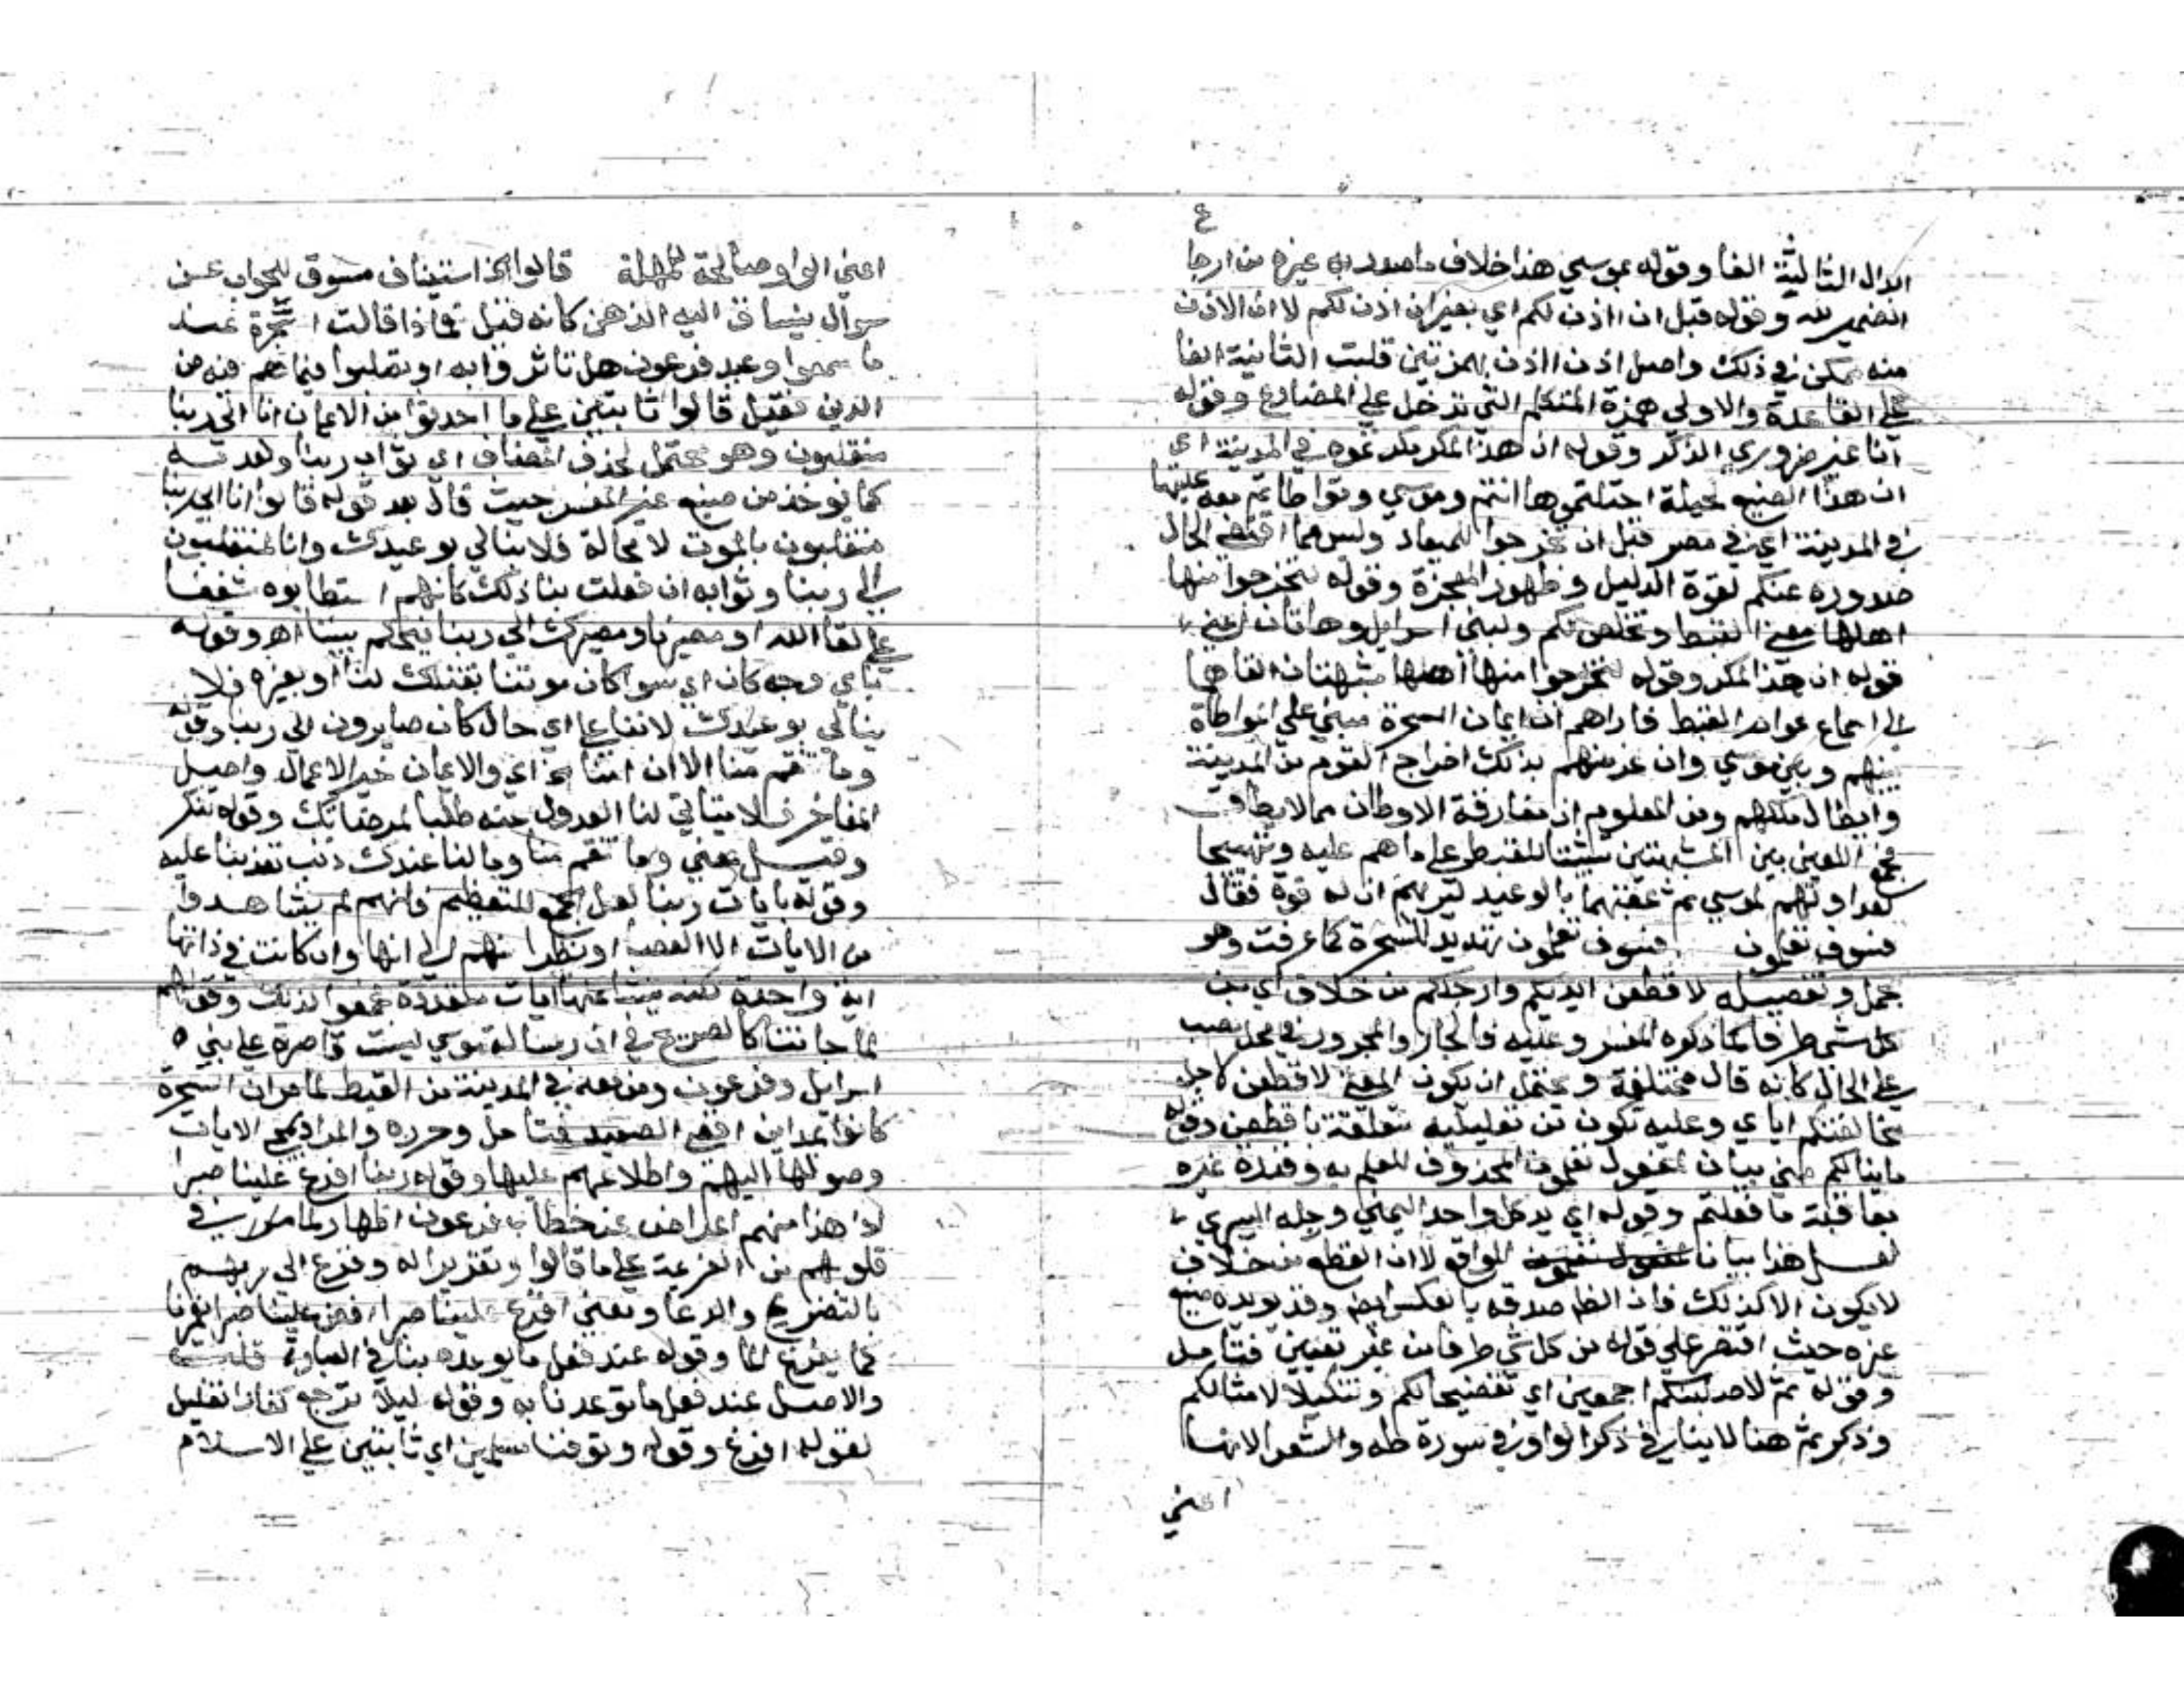 ٤
ابدال الثالثة الفا وقوله بموسي هذا خلاف ما صدر به غيره من ارجا
الضمير لله وقوله قبل ان ااذن لكم اي بغير ان اذن لكم لا ان الاذن
منه ممكن في ذلك واصل اذن ااذن بهمزتين قلبت الثانية الفا
علي القاعدة والاولي همزة المتكلم التي تدخل علي المضارع وقوله
انا غير ضروري الذكر وقوله ان هذا لمكر مكرتموه في المدينة اي
ان هذا الصنيع لحيلة احتلتموها انتم وموسي وتواطاتم معه عليها
في المدينة اي في مصر قبل ان تخرجوا للميعاد وليس مما اقتضي الحال
صدوره عنكم لقوة الدليل وظهور المعجزة وقوله لتخرجوا منها
اهلها يعني القبط وتخلص لكم ولبني اسرايل وهاتان اعني
قوله ان هذا لمكر وقوله لتخرجوا منها اهلها شبهتان القاهما
الي اسماع عوام القبط فاراهم ان ايمان السحرة مبني علي المواطاة
بينهم وبين موسي وان غرضهم بذلك اخراج القوم من المدينة
وابطال ملكهم ومن المعلوم ان مفارقة الاوطان مما لا يطاق
فجمع اللعين بين الشبهتين تثبيتا للقبط علي ما هم عليه وتهييجا
لعداوتهم لموسي ثم عقبهما بالوعيد ليريهم ان له قوة فقال
فسوف تعلمون فسوف تعلمون تهديد للسحرة كما عرفت وهو
مجمل وتفصيله لاقطعن ايديكم وارجلكم من خلاف اي من
كل شي طرفا كما ذكره المفسر وعليه فالجار والمجرور في محل نصب
علي الحال كانه قال مختلفة ويحتمل ان يكون المعني لاقطعن لاجل
مخالفتكم اياي وعليه تكون من تعليلية متعلقة باقطعن وقوله
ما ينالكم مني بيان لمفعول تعلمون المحذوف للعلم به وقدره غيره
بعاقبة ما فعلتم وقوله اي يد كل واحد اليمني ورجله اليسري
لعل هذا بيانا للواقع لا ان القطع من خلاف
لا يكون الا كذلك فان الظ صدقه بالعكس ايضا وقد يويده صنيع
غيره حيث اقتصر علي قوله من كل شي طرفا من غير تعيين فتامل
وقوله ثم لاصلبنكم اجمعين اي تفضيحا لكم وتنكيلا لامثالكم
وذكر ثم هنا لا ينافي ذكر الواو في سورة طه والشعرا لانها
اعني
اعني الواو صالحة للمهلة قالوا الخ استيناف مسوق للجواب عن
سوال ينساق اليه الذهن كانه قيل فماذا قالت السحرة عند
ما سمعوا وعيد فرعون هل تاثروا به او تصلبوا فيما هم فيه من
الدين فقيل قالوا ثابتين علي ما احدثوا من الايمان انا الي ربنا
منقلبون وهو محتمل لحذف المضاف اي ثواب ربنا ولعدمه
كما يوخذ من صنيع غير المفسر حيث قال بعد قوله قالوا انا الي ربنا
منقلبون بالموت لا محالة فلا نبالي بوعيدك وانا لمنقلبون
الي ربنا وثوابه ان فعلت بنا ذلك كانهم استطابوه شغفا
علي لقا الله او مصيرنا ومصيرك الي ربنا فيحكم بيننا اهـ وقوله
باي وجه كان اي سوا كان موتنا بقتلك لنا او بغيره فلا
نبالي بوعيدك لاننا علي اي حال كان صايرون الي ربنا وقوله
وما تنقم منا الا ان امنا الخ اي والايمان خير الاعمال واصل
المفاخر فلا يتاتي لنا العدول عنه طلبا لمرضاتك وقوله تنكر
وقيل يعني وما تنقم منا وما لنا عندك ذنب تعذبنا عليه
وقوله بايات ربنا لعل الجمع للتعظيم فانهم لم يشاهدوا
من الايات الا العصا او نظرا منهم الي انها وان كانت في ذاتها
اية واحدة لكنه ينشا عنها ايات متعددة فجمعوا لذلك وقولهم
لما جاتنا كالصريح في ان رسالة موسي ليست قاصرة علي بني
اسرايل وفرعون ومن معه في المدينة من القبط لما مر ان السحرة
كانوا بمداين اقصي الصعيد فتامل وحرره والمراد بمجي الايات
وصولها اليهم واطلاعهم عليها وقوله ربنا افرغ علينا صبرا
الا هذا منهم اعراض عن خطاب فرعون اظهارا لما في
قلوبهم من العزيمة علي ما قالوا وتقريرا له وفزع الي ربهم
بالتضرع والدعا ومعني افرغ علينا صبرا افض علينا صبرا يغمرنا
كما يفرغ الما وقوله عند فعل ما يوعده بنا في العبارة قلب
والاصل عند فعل ما توعدنا به وقوله ليلا نرجع كفارا تعليل
لقوله افرغ وقوله وتوفنا مسلمين اي ثابتين علي الاسلام